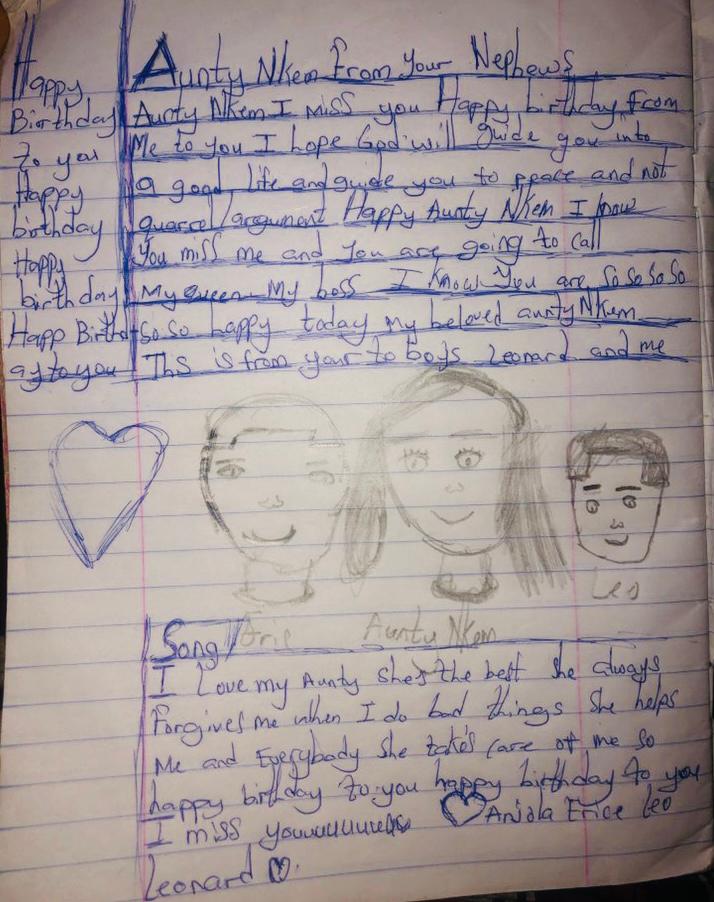 Happy
Birthday
to you
Happy
birthday
Happy
birthday
Happ Birthd
ay to you
Aunty Nkem From Your Nephews
Aunty Nkem I miss you Happy birthday from
Me to you I hope God will guide you into
a good life and guide you to peace and not
quarrel/argument Happy Aunty Nkem I know
You miss me and You are going to call
My queen My boss I know You are so so so so
so so happy today my beloved aunty Nkem
Ths is from your to boys Leonard and me
Leo
Eric Aunty Nkem
Song
I Love my Aunty she's the best she always
Forgives me when I do bad things she helps
Me and Everybody she takes care of me so
happy birthday to you happy birthday to you
I miss youuuuuuu Anjola Erice Leo
Leonard